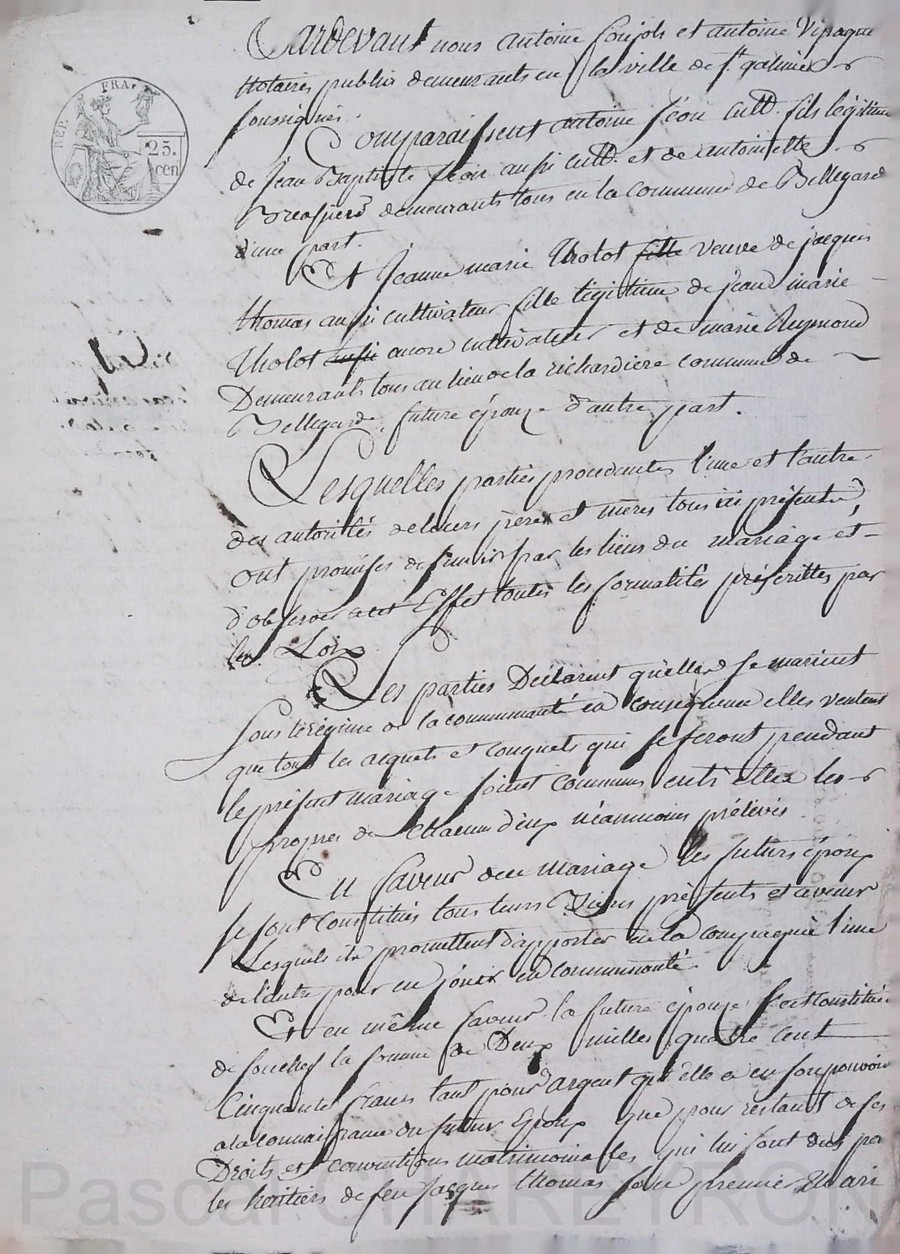 REP. FRA.
25.
cen
Pardevant nous antoine et antoine
Notaires publics demeurants en la ville de st galmier
soussignés.
Comparaissent antoine féon cult. fils légitime
de Jean Baptiste féon aussi cult. et de antoinette
demeurants tous en la commune de Bellegarde
d'une part.
Et Jeanne marie tholot fille veuve de jacques
thomas aussi cultivateur fille légitime de jean marie
tholot aussi encore cultivateur et de marie Reymond
Demeurants tous au lieu de la richardiere commune de
Bellegarde, future épouze d'autre part.
Lesquelles parties procedantes l'une et l'autre
des autorités de leurs peres et meres tous ici présents
ont promises de s'unir par les liens du mariage et
d'observer a cet Effet toutes les formalités préscrittes par
les Loix
Les parties Déclarent qu'elles se marient
sous le régime de la communauté en consequence elles veulent
que tous les acquets et conquets qui se feront pendant
le présent mariage soient communs entr'elles les
propres de chacun d'eux néanmoins prélevés
En faveur de ce mariage les futurs époux
se sont constitués tous leurs Biens présents et avenir
Lesquels ils promettent d'apporter en la compagnie l'une
de l'autre pour en jouir en communauté.
Et en même faveur la future épouze s'est constituée
de son chef la somme de Deux milles quatre cent
Cinquante francs tant pour argent qu'elle a en son pouvoir
a la connaissance du futur Epoux que pour restant de ses
Droits et conventions matrimoniales qui lui sont dus par
les héritiers de feu Jacques thomas son premier Mari
Pascal CHAREYRON